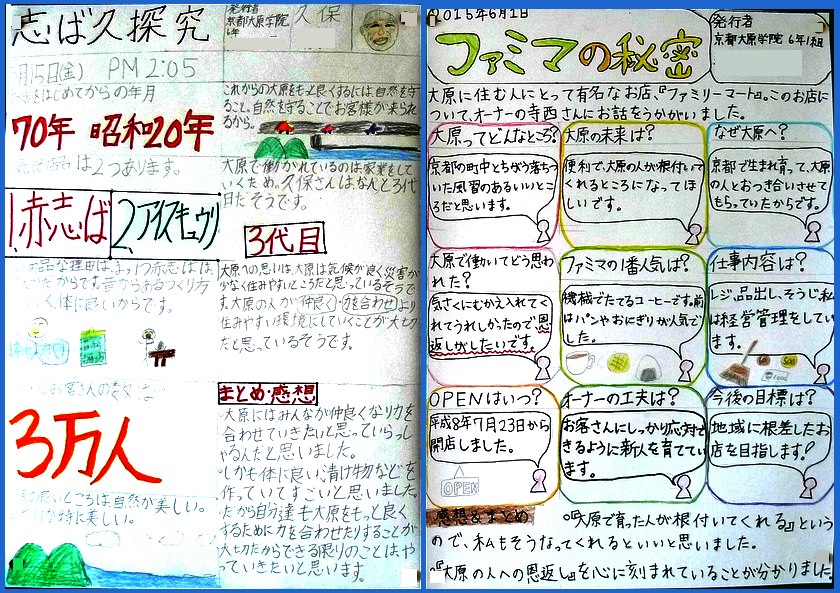 志ば久探究
発行者
京都大原学院
6年
久保
月15日(金) PM 2:05
をはじめてからの年月
70年 昭和20年
は2つあります。
1.赤志ば
2.アイスキュウリ
いたからです。昔からあるつくり方
く体に良いからです。
お客さんの数は
3万人
の良いところは自然が美しい。
が特に美しい。
これからの大原をもっと良くするには、自然を守
ること。自然を守ることでお客様が来られ
るから。
大原で働かれているのは家業をして
いくため。久保さんはなんと3代
目だそうです。
3代目
大原への思いは、大原は気候が良く災害が
少なく住みやすいところだと思っているそうで
す。大原の人が仲良く力を合わせより
住みやすい環境にしていくことが大切
だと思っているそうです。
まとめ・感想
大原にはみんなが仲良くなり力を
合わせていきたいと思っていらっし
ゃるんだと思いました。
しかも体に良い漬け物などを
作っていてすごいと思いました。
だから自分達も大原をもっと良く
するために力を合わせたりすることが
大切だからできる限りのことはや
っていきたいと思います。
2015年6月1日
ファミマの秘密
発行者
京都大原学院 6年1組
大原に住む人にとって有名なお店、『ファミリーマート』。このお店に
ついて、オーナーの寺西さんにお話をうかがいました。
大原ってどんなところ?
京都の町中とちがう落ちつ
いた風習のあるいいとこ
ろだと思います。
大原の未来は?
便利で、大原の人が根付いて
くれるところになってほ
しいです。
なぜ大原へ?
京都で生まれ育って、大原
の人とおつき合いさせて
もらっていたからです。
大原で働いてどう思わ
れた?
気さくにむかえ入れてく
れてうれしかったので恩
返しがしたいです。
ファミマの1番人気は?
機械でたてるコーヒーです。前
はパンやおにぎりが人気で
した。
仕事内容は?
レジ、品出し、そうじ、私
は経営管理をしてい
ます。
OPENはいつ?
平成8年7月23日から
開店しました。
OPEN
オーナーの工夫は?
お客さんにしっかり応対で
きるように新人を育ててい
ます。
今後の目標は?
地域に根差したお
店を目指します!
感想&まとめ
○『大原で育った人が根付いてくれる』という
ので、私もそうなってくれるといいと思いました。
○『大原の人への恩返し』を心に刻まれていることが分かりました。